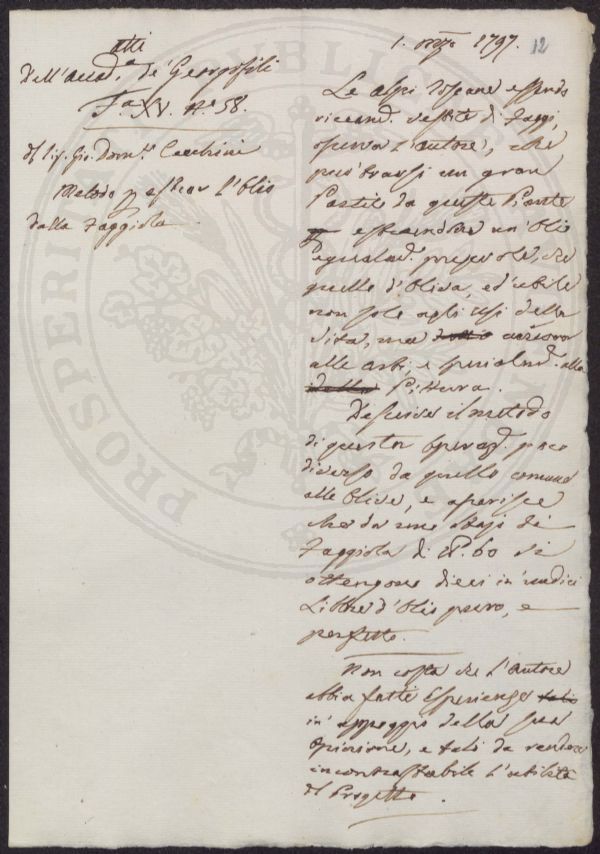 Atti
Dell'Accad.a de' Georgofili
F.a XV. N.o 58.
Del Sig. Gio. Dom.co Cecchini
Metodo p estrar l'Olio
dalla Faggiola
1. 1797. 12
Le alpi Toscane essendo
riccam.te vestite di Faggi,
osserva l'autore, che
può trarsi un gran
Partito da queste Piante
estraendone un'Olio
egualm.te pregevole, che
quello d'Oliva, ed utile
non solo agli usi della
Vita, ma ancora
alle arti, e specialm.te alla
Pittura.
Descrive il metodo
di questa operaz. poco
diverso da quello comune
alle Olive, e asserisce
che da uno Stajo di
Faggiola di 60 si
ottengono dieci in undici
Libbre d'Olio puro, e
perfetto.
Non costa che l'Autore
abbia fatte Esperienze
in appoggio della sua
Opinione, e tali da rendere
incontrastabile l'utilità
del Progetto.
PROSPERITATI PUBLICAE